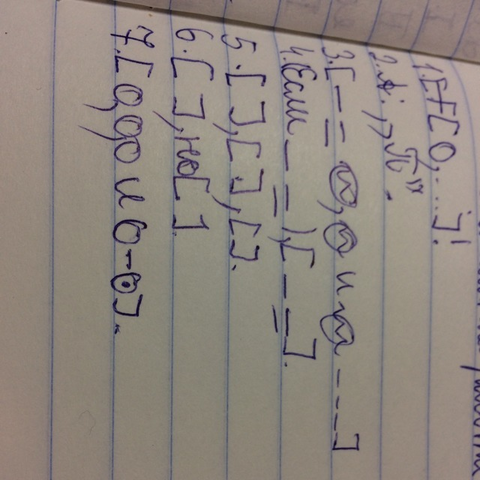 1. [+[О, ...]!
2. А: „П".
3. [ _ = О, О и О _ _ _ ]
4. (Если _ = ), [ _ = ].
5. [ ], [ ], [ ].
6. [ ], но [ ].
7. [ О, О, О и О - О ].